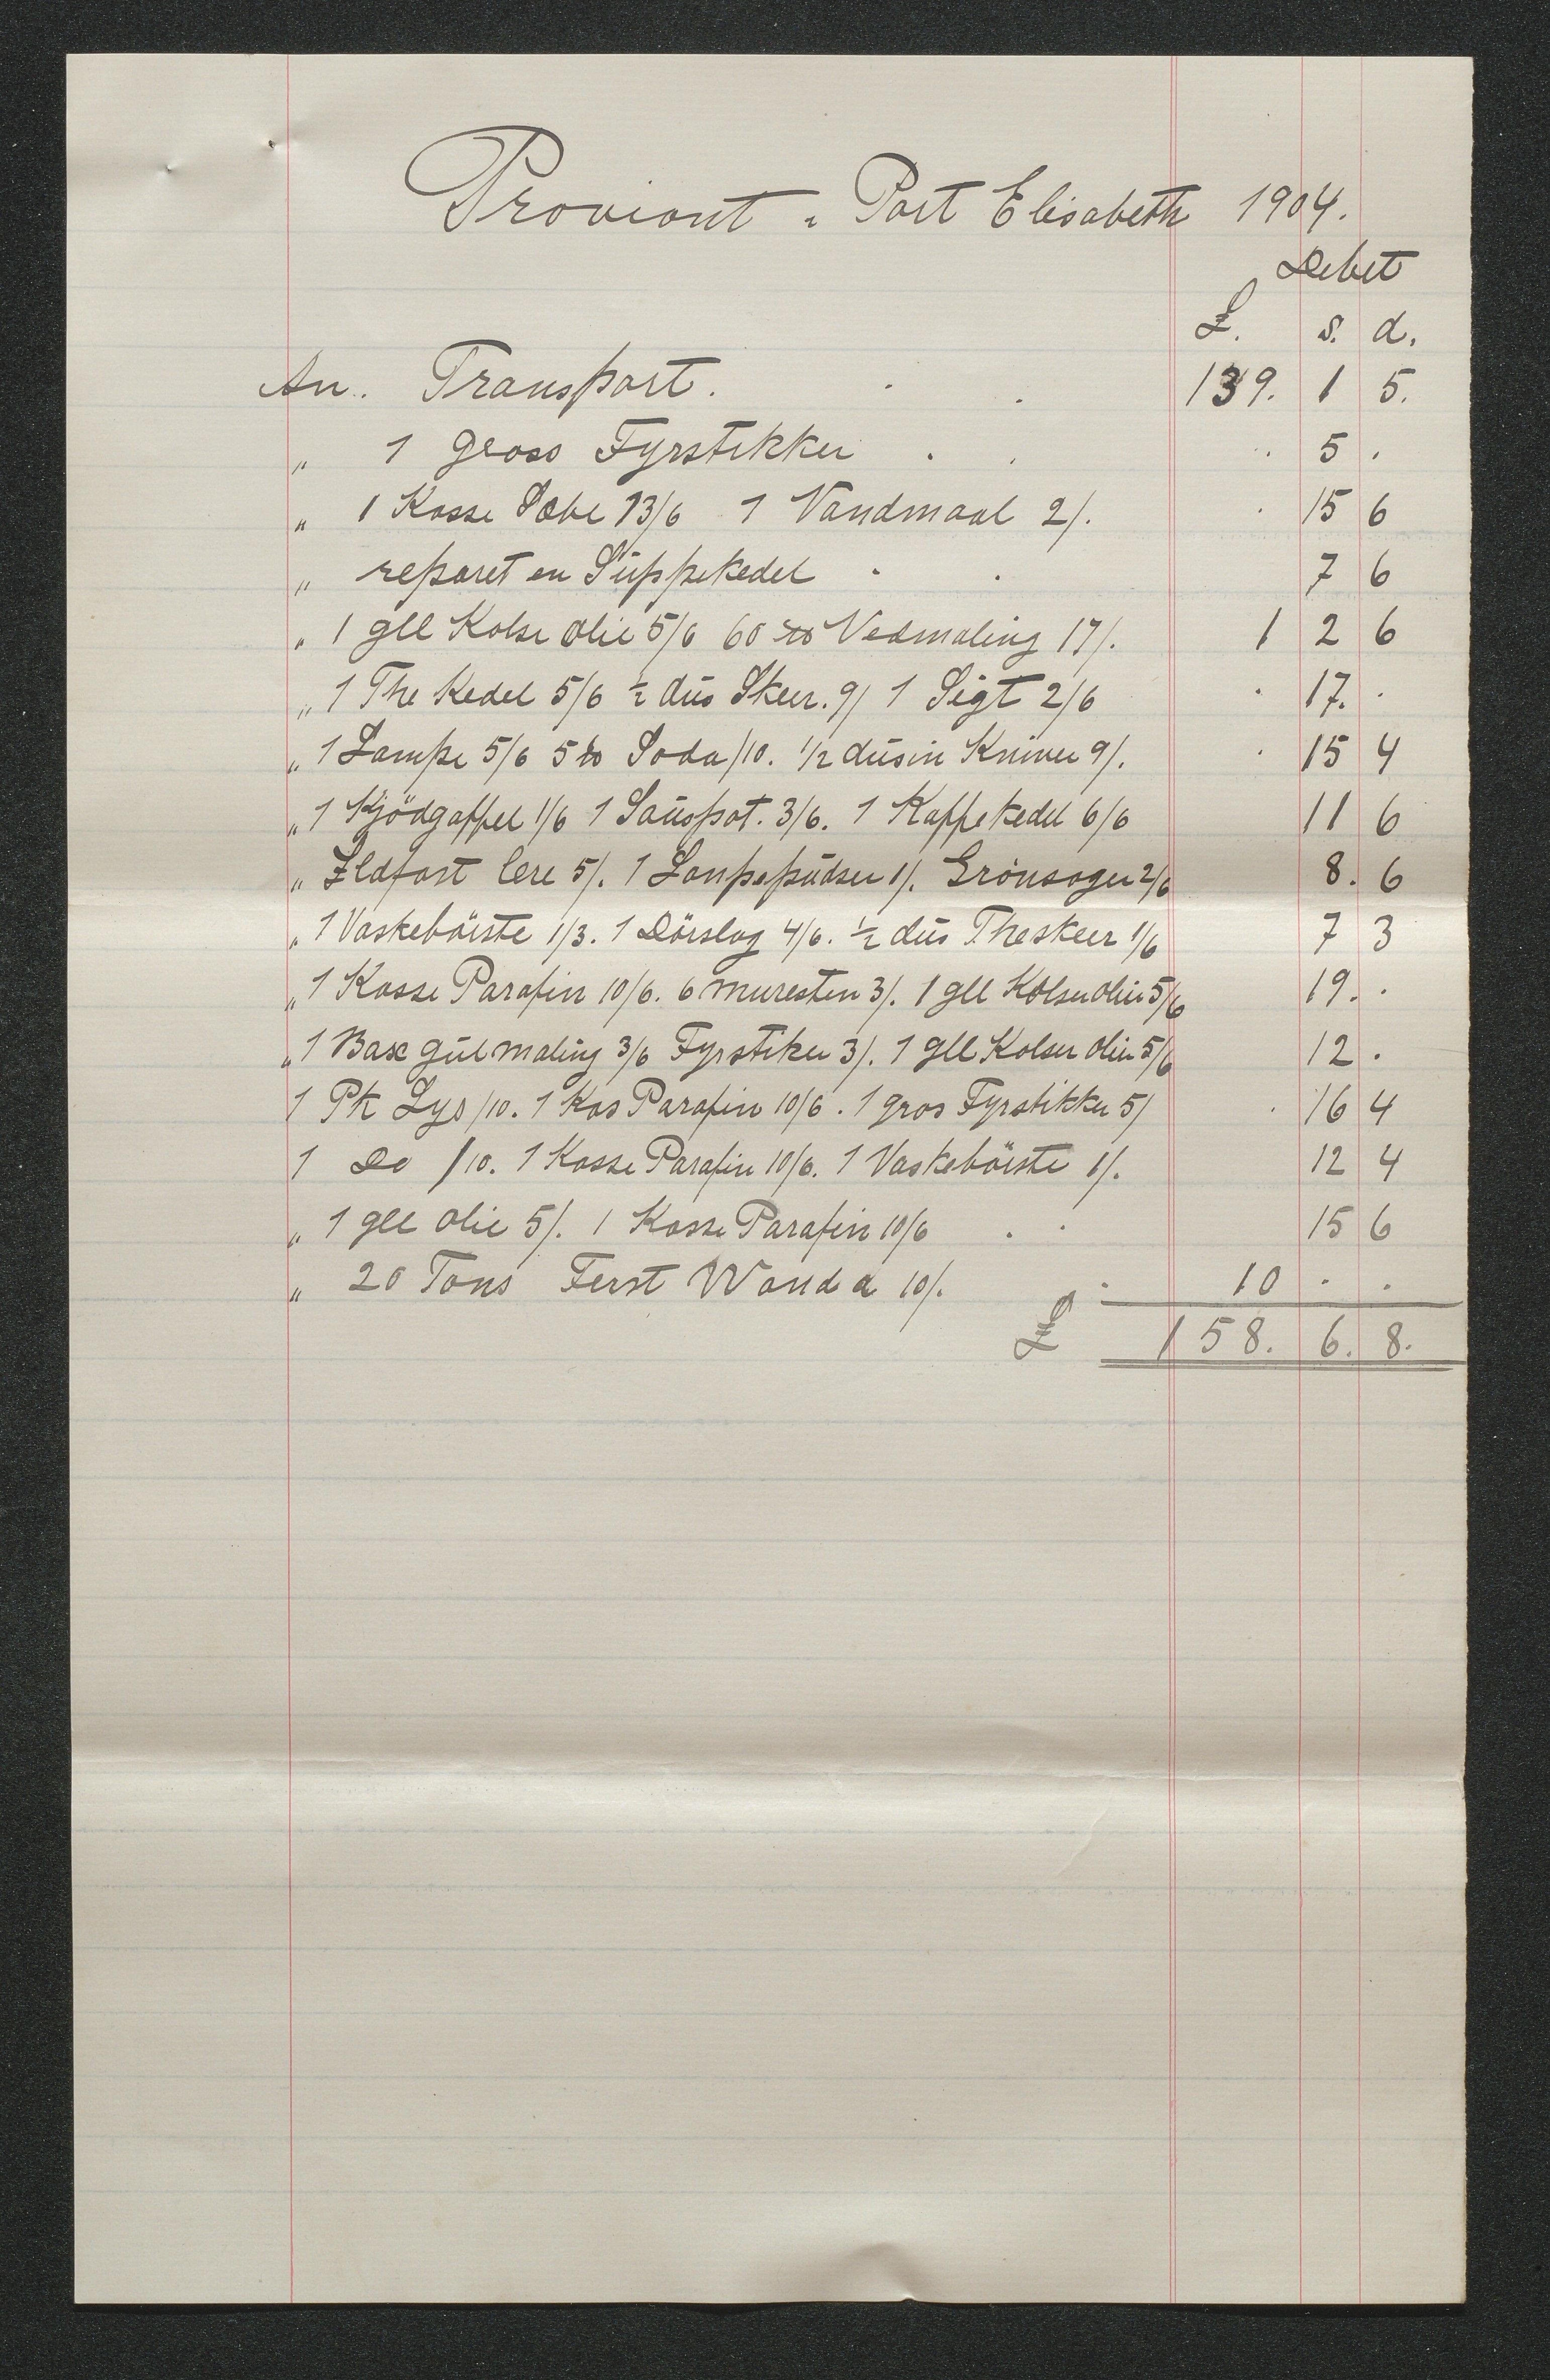 Proviant i Port Elisabeth 1904.
Debet
£. s. d.
An. Transport. . . 139. 1 5.
" 1 gross Fyrstikker . . . 5 .
" 1 Kasse Sæbe 13/6 1 Vandmaal 2/. . 15 6
" reparet en Suppekedel . . 7 6
" 1 gll Kolse olie 5/6 60 Vedmaling 17/. 1 2 6
" 1 The Kedel 5/6 ½ dus Skeer. 9/ 1 Sigt 2/6 . 17. .
" 1 Lampe 5/6 5 Soda /10. 1/2 dusin Kniver 9/. . 15 4
" 1 Kjödgaffel 1/6 1 Sauspot. 3/6. 1 Kaffekedel 6/6 11 6
" Ildfast lere 5/. 1 Lampepudser 1/. Grönsager 2/6 8. 6
" 1 Vaskebörste 1/3. 1 Dörslag 4/6. ½ dus Theskeer 1/6 7 3
" 1 Kasse Parafin 10/6. 6 muresten 3/. 1 gll Kolsen olie 5/6 19. .
" 1 Bax gul maling 3/6 Fyrstiker 3/. 1 gll Kolsen olie 5/6 12 .
1 Pk Lys /10. 1 Kas Parafin 10/6. 1 gros Fyrstikker 5/ . 16 4
1 Do /10. 1 Kasse Parafin 10/6. 1 Vaskebörste 1/. 12 4
" 1 gll olie 5/. 1 Kasse Parafin 10/6 . . 15 6
" 20 Tons Ferst Wand a 10/. . 10 . .
£ 158. 6. 8.